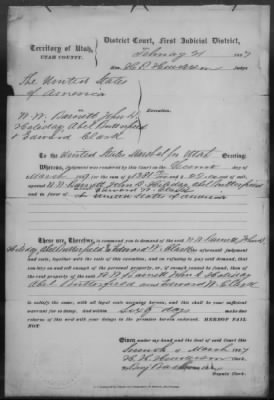 Territory of Utah,
UTAH COUNTY.
District Court, First Judicial District,
1887
Hon. H. P. Henderson Judge
The United States
of America
vs.
W. W. Barnett John D.
Holiday, Abel Butterfield
& Edward Clark
Execution.
To the United States Marshal for Utah Greeting:
Whereas, judgment was rendered in this Court on the
March 1887 for the sum of
against W. W. Barnett John D. Holiday Abel Butterfield
and in favor of
United States of America
These are, Therefore, to command you to demand of the said W. W. Barnett John D.
Holiday, Abel Butterfield & Edward W. Clark the aforesaid judgment
and costs, together with the costs of this execution, and on refusing to pay said demand, that
you levy on and sell enough of the personal property, or if enough cannot be found, then of
the real property of the said W. W. Barnett John D. Holiday
Abel Butterfield and Edward W. Clark
to satisfy the same, with all legal costs accruing herein; and this shall be your sufficient
warrant for so doing, and within sixty days make due
returns of this writ with your doings in the premises herein endorsed. HEREOF FAIL
NOT.
Given under my hand and the seal of said Court this
March 1887
H. H. Henderson Clerk.
By
Deputy Clerk.